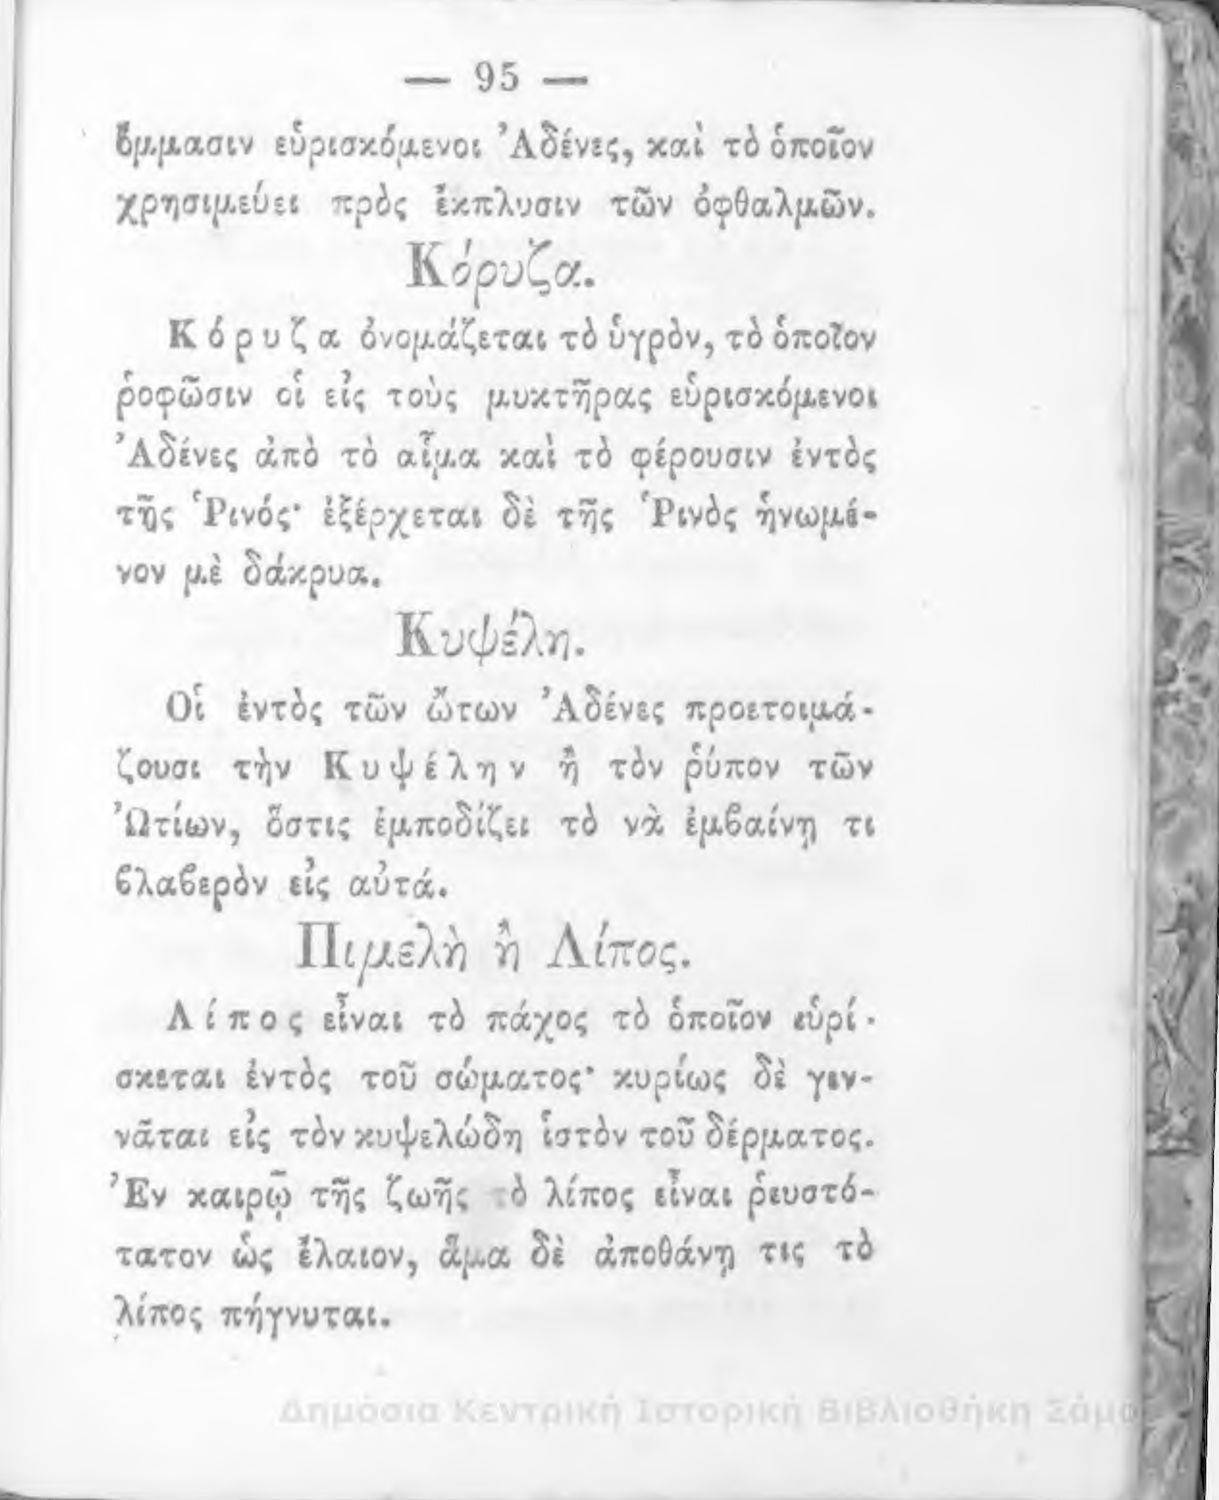 — 95 —
ὄμμασιν εὑρισκόμενοι Ἀδένες, καὶ τὸ ὁποῖον
χρησιμεύει πρὸς ἔκπλυσιν τῶν ὀφθαλμῶν.
Κόρυζα.
Κόρυζα ὀνομάζεται τὸ ὑγρὸν, τὸ ὁποῖον
ῥοφῶσιν οἱ εἰς τοὺς μυκτῆρας εὑρισκόμενοι
Ἀδένες ἀπὸ τὸ αἷμα καὶ τὸ φέρουσιν ἐντὸς
τῆς Ῥινός· ἐξέρχεται δὲ τῆς Ῥινὸς ἡνωμέ-
νον μὲ δάκρυα.
Κυψέλη.
Οἱ ἐντὸς τῶν ὤτων Ἀδένες προετοιμά-
ζουσι τὴν Κυψέλην ἢ τὸν ῥύπον τῶν
Ὠτίων, ὅστις ἐμποδίζει τὸ νὰ ἐμβαίνῃ τι
βλαβερὸν εἰς αὐτά.
Πιμελὴ ἢ Λίπος.
Λίπος εἶναι τὸ πάχος τὸ ὁποῖον εὑρί-
σκεται ἐντὸς τοῦ σώματος· κυρίως δὲ γεν-
νᾶται εἰς τὸν κυψελώδη ἱστὸν τοῦ δέρματος.
Ἐν καιρῷ τῆς ζωῆς τὸ λίπος εἶναι ῥευστό-
τατον ὡς ἔλαιον, ἅμα δὲ ἀποθάνῃ τις τὸ
λίπος πήγνυται.
Δημόσια Κεντρική Ιστορική Βιβλιοθήκη Σάμο